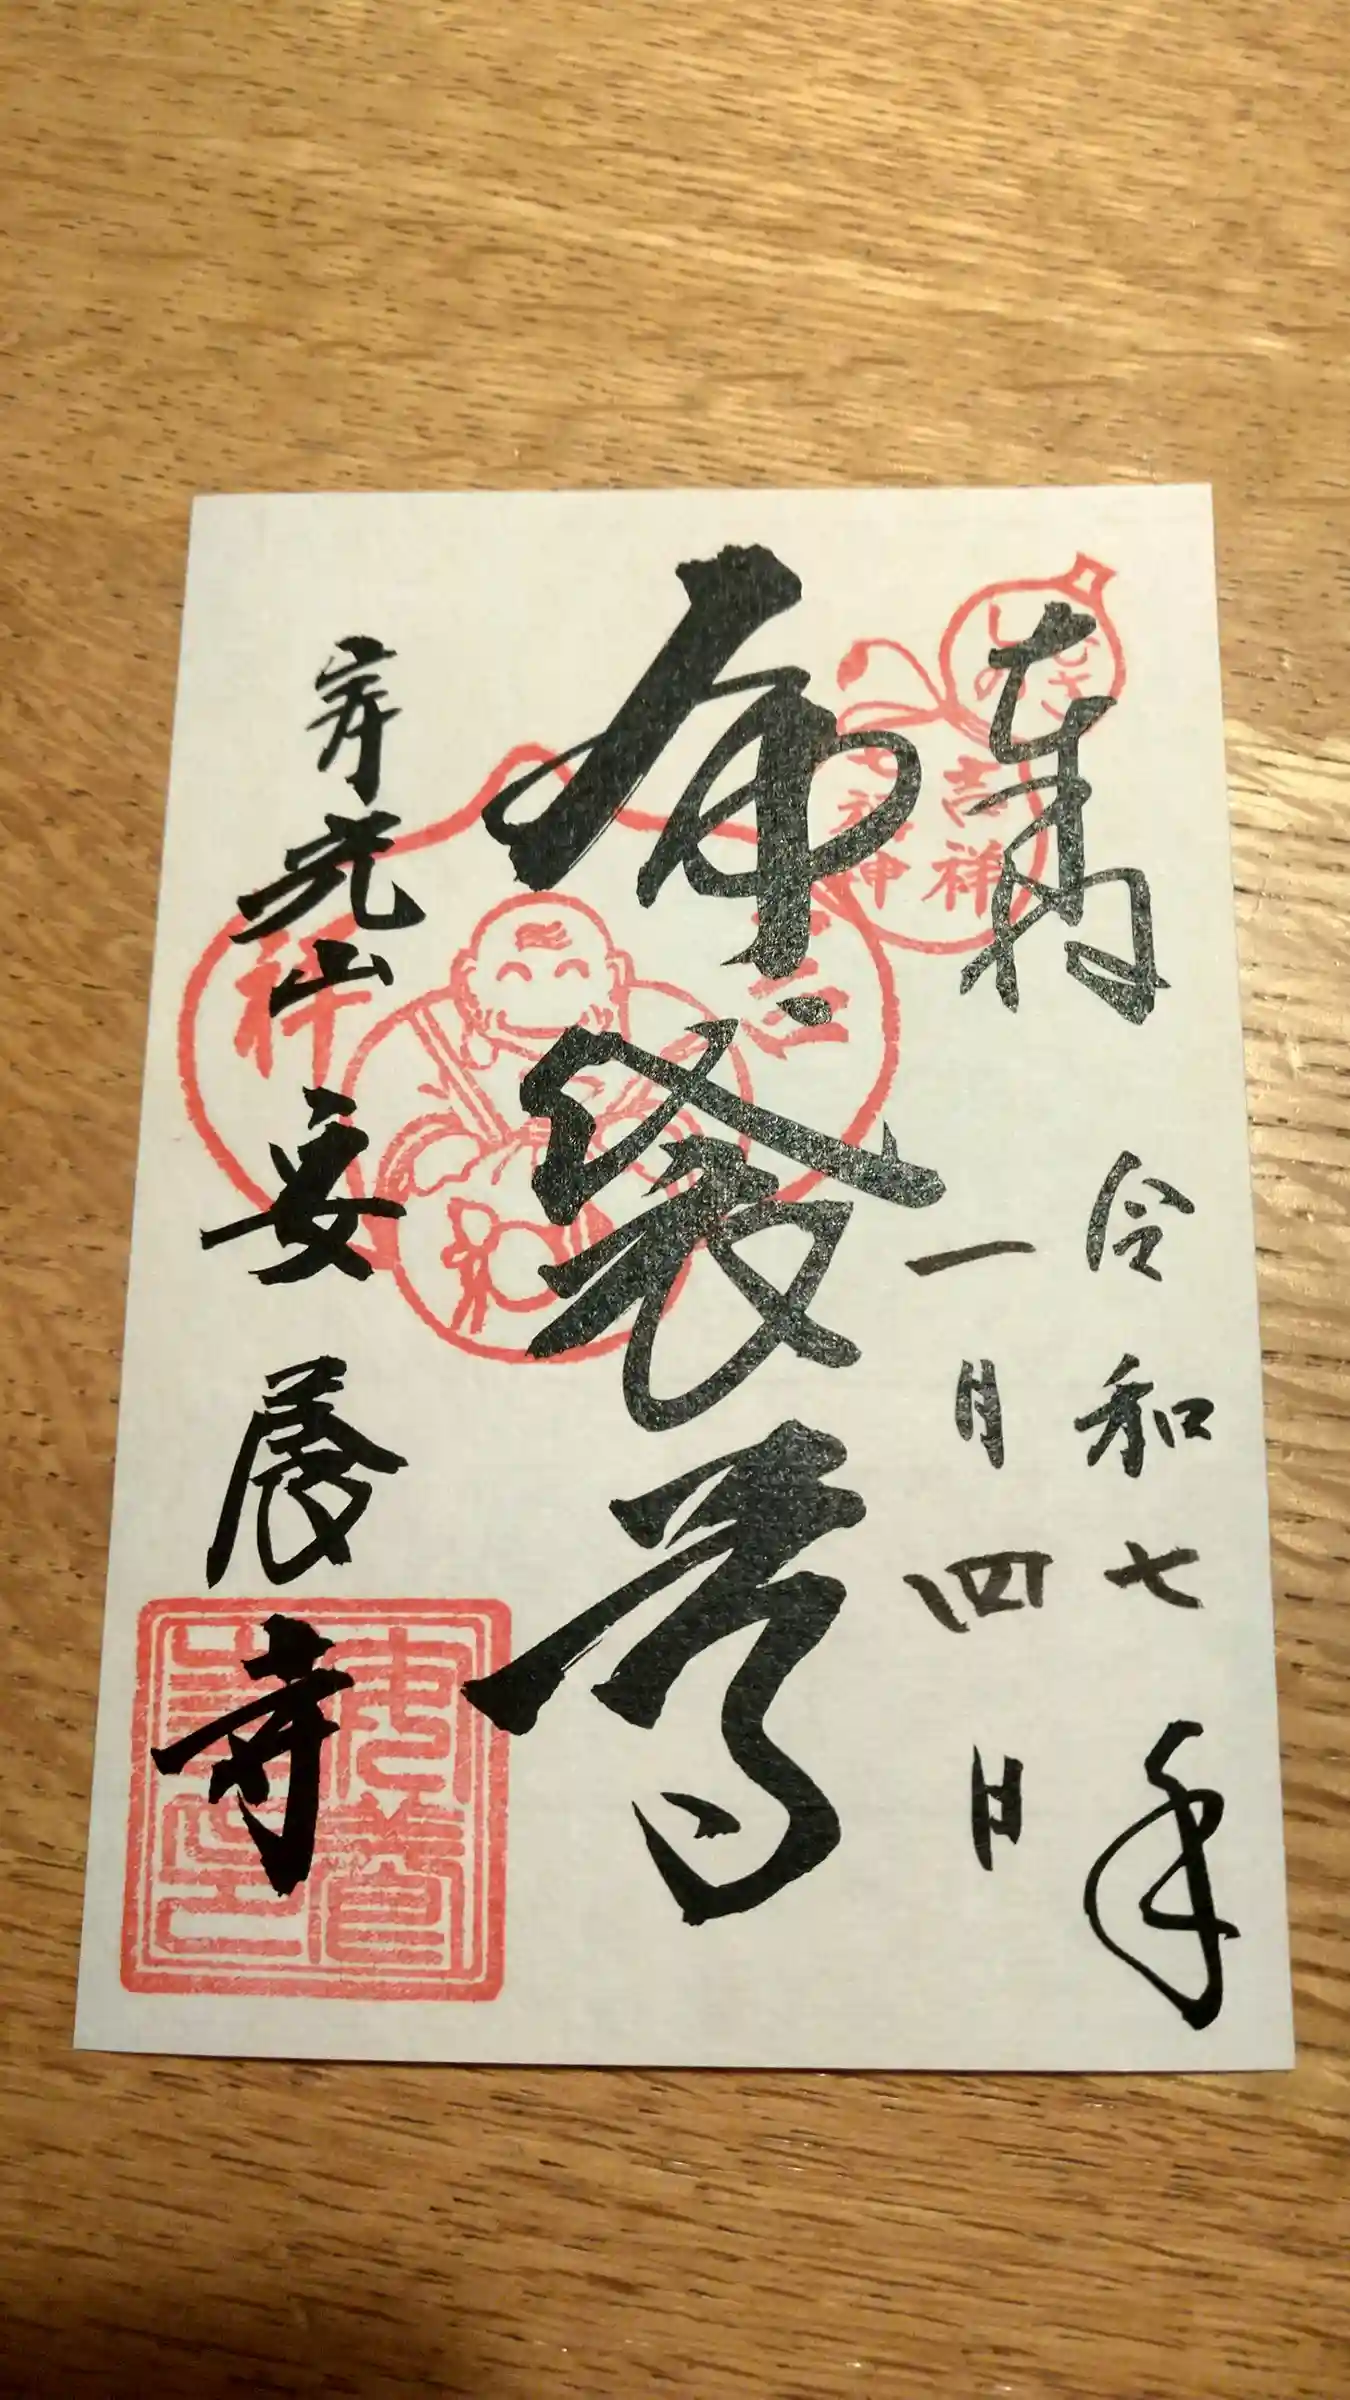 奉拝
令和七年
一月四日
布袋尊
光山
安養寺
むさしの
吉祥
七福神
安養
寺印